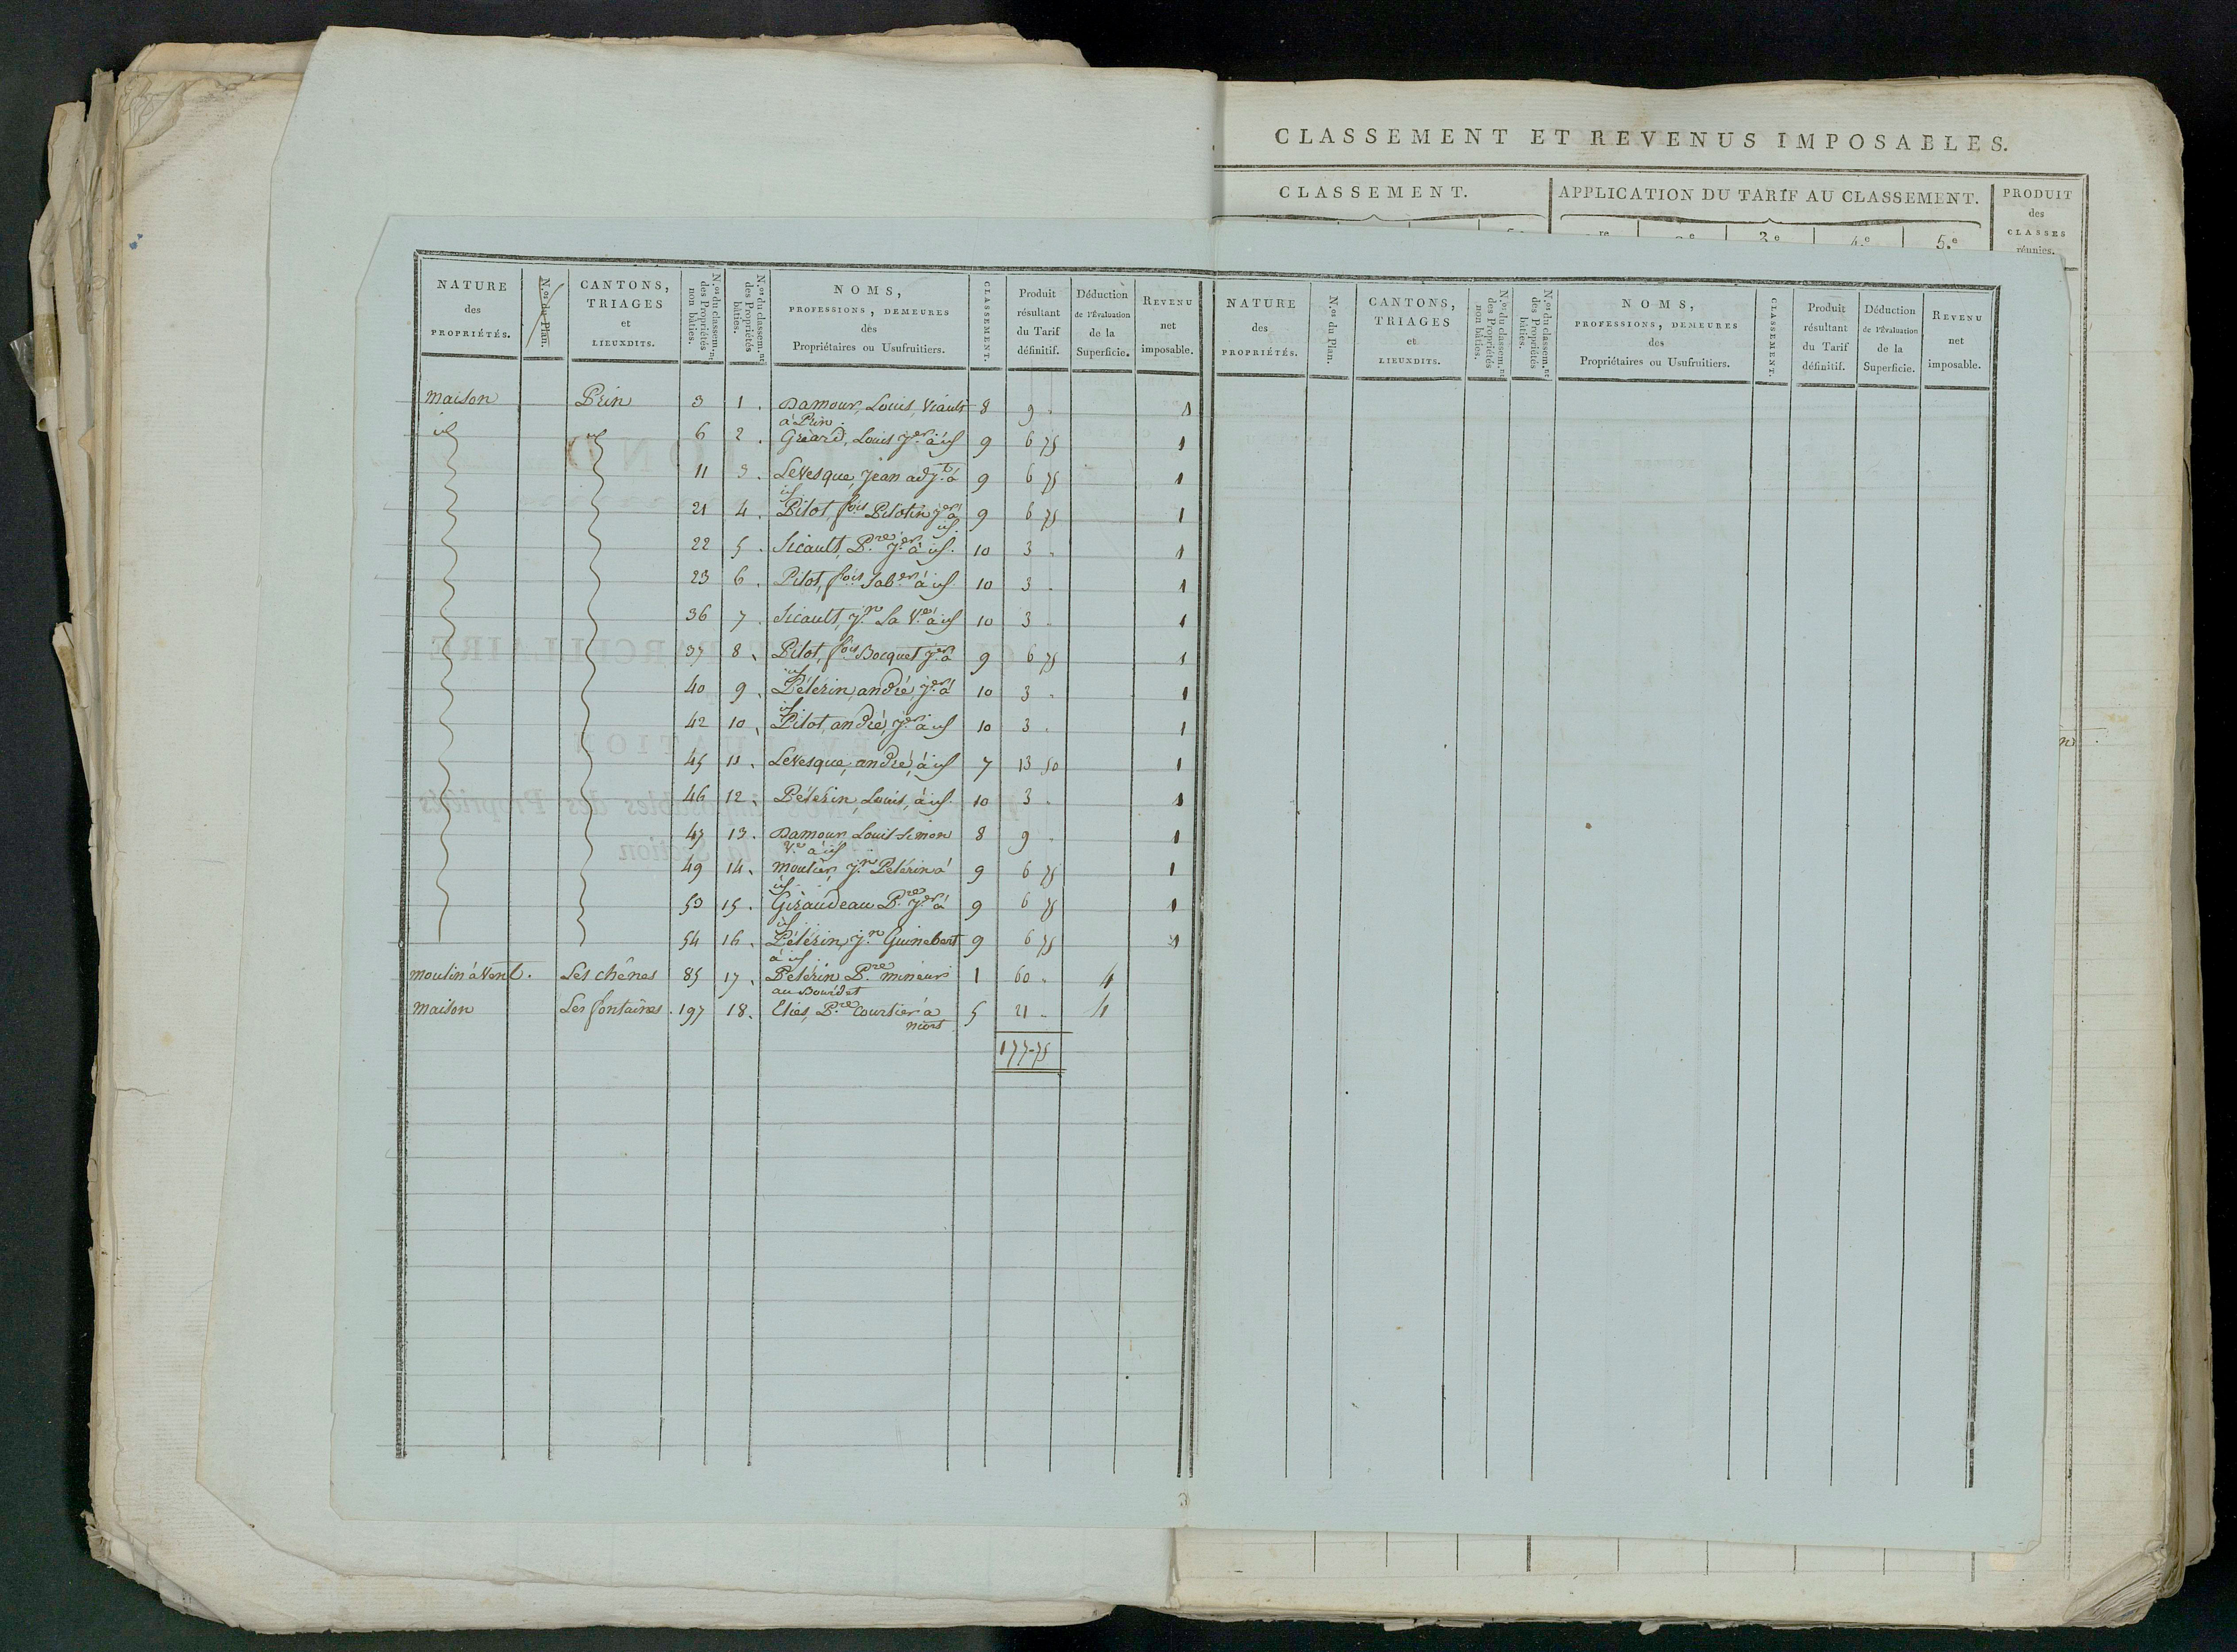 CLASSEMENT ET REVENUS IMPOSABLES.
CLASSEMENT. APPLICATION DU TARIF AU CLASSEMENT. PRODUIT des CLASSES réunies.
3.e 4.e 5.e
NATURE des PROPRIÉTÉS. N.os du Plan. CANTONS, TRIAGES et LIEUXDITS. N.os du classem.nt des Propriétés non bâties. N.os du classem.nt des Propriétés bâties. NOMS, PROFESSIONS, DEMEURES des Propriétaires ou Usufruitiers. CLASSEMENT. Produit résultant du Tarif définitif. Déduction de l'Évaluation de la Superficie. REVENU net imposable.
maison Prin 3 1. Damour, Louis, Viault 8 9 " 1
à Prin.
id id 6 2. Gréard, Louis j.er à id 9 6 75 1
11 3. Levesque, Jean adj.t à 9 6 75 1
id
21 4. Pilot, f.ois Pilotin j.er à 9 6 75 1
id.
22 5. Sicault, P.re j.er à id. 10 3 " 1
23 6. Pilot, f.ois Sab.er à id 10 3 " 1
36 7. Sicault, j.n La V.e à id 10 3 " 1
37 8. Pilot, f.ois Bocquet j.er à 9 6 75 1
id
40 9. Pélérin, andré, j.er à 10 3 " 1
id
42 10. Pilot, andré, j.er à id 10 3 " 1
45 11. Levesque, andré, à id 7 13 50 1
46 12. Pélérin, Louis, à id. 10 3 " 1
47 13. Damour Louis Simon 8 9 " 1
V.e à id
49 14. moulier, j.n Pélérin à 9 6 75 1
id
53 15. Giraudeau P.re j.er à 9 6 75 1
id
54 16. Pélérin, j.n Guinebert 9 6 75 1
à id
moulin à Vent. Les chênes 85 17. Pélérin P.re mineur 1 60 " 4
au Bourdet
maison Les fontaînes. 197 18. Elies, P.re Courtier à 5 21 " 4
niort
177-75
NATURE des PROPRIÉTÉS. N.os du Plan. CANTONS, TRIAGES et LIEUXDITS. N.os du classem.nt des Propriétés non bâties. N.os du classem.nt des Propriétés bâties. NOMS, PROFESSIONS, DEMEURES des Propriétaires ou Usufruitiers. CLASSEMENT. Produit résultant du Tarif définitif. Déduction de l'Évaluation de la Superficie. REVENU net imposable.